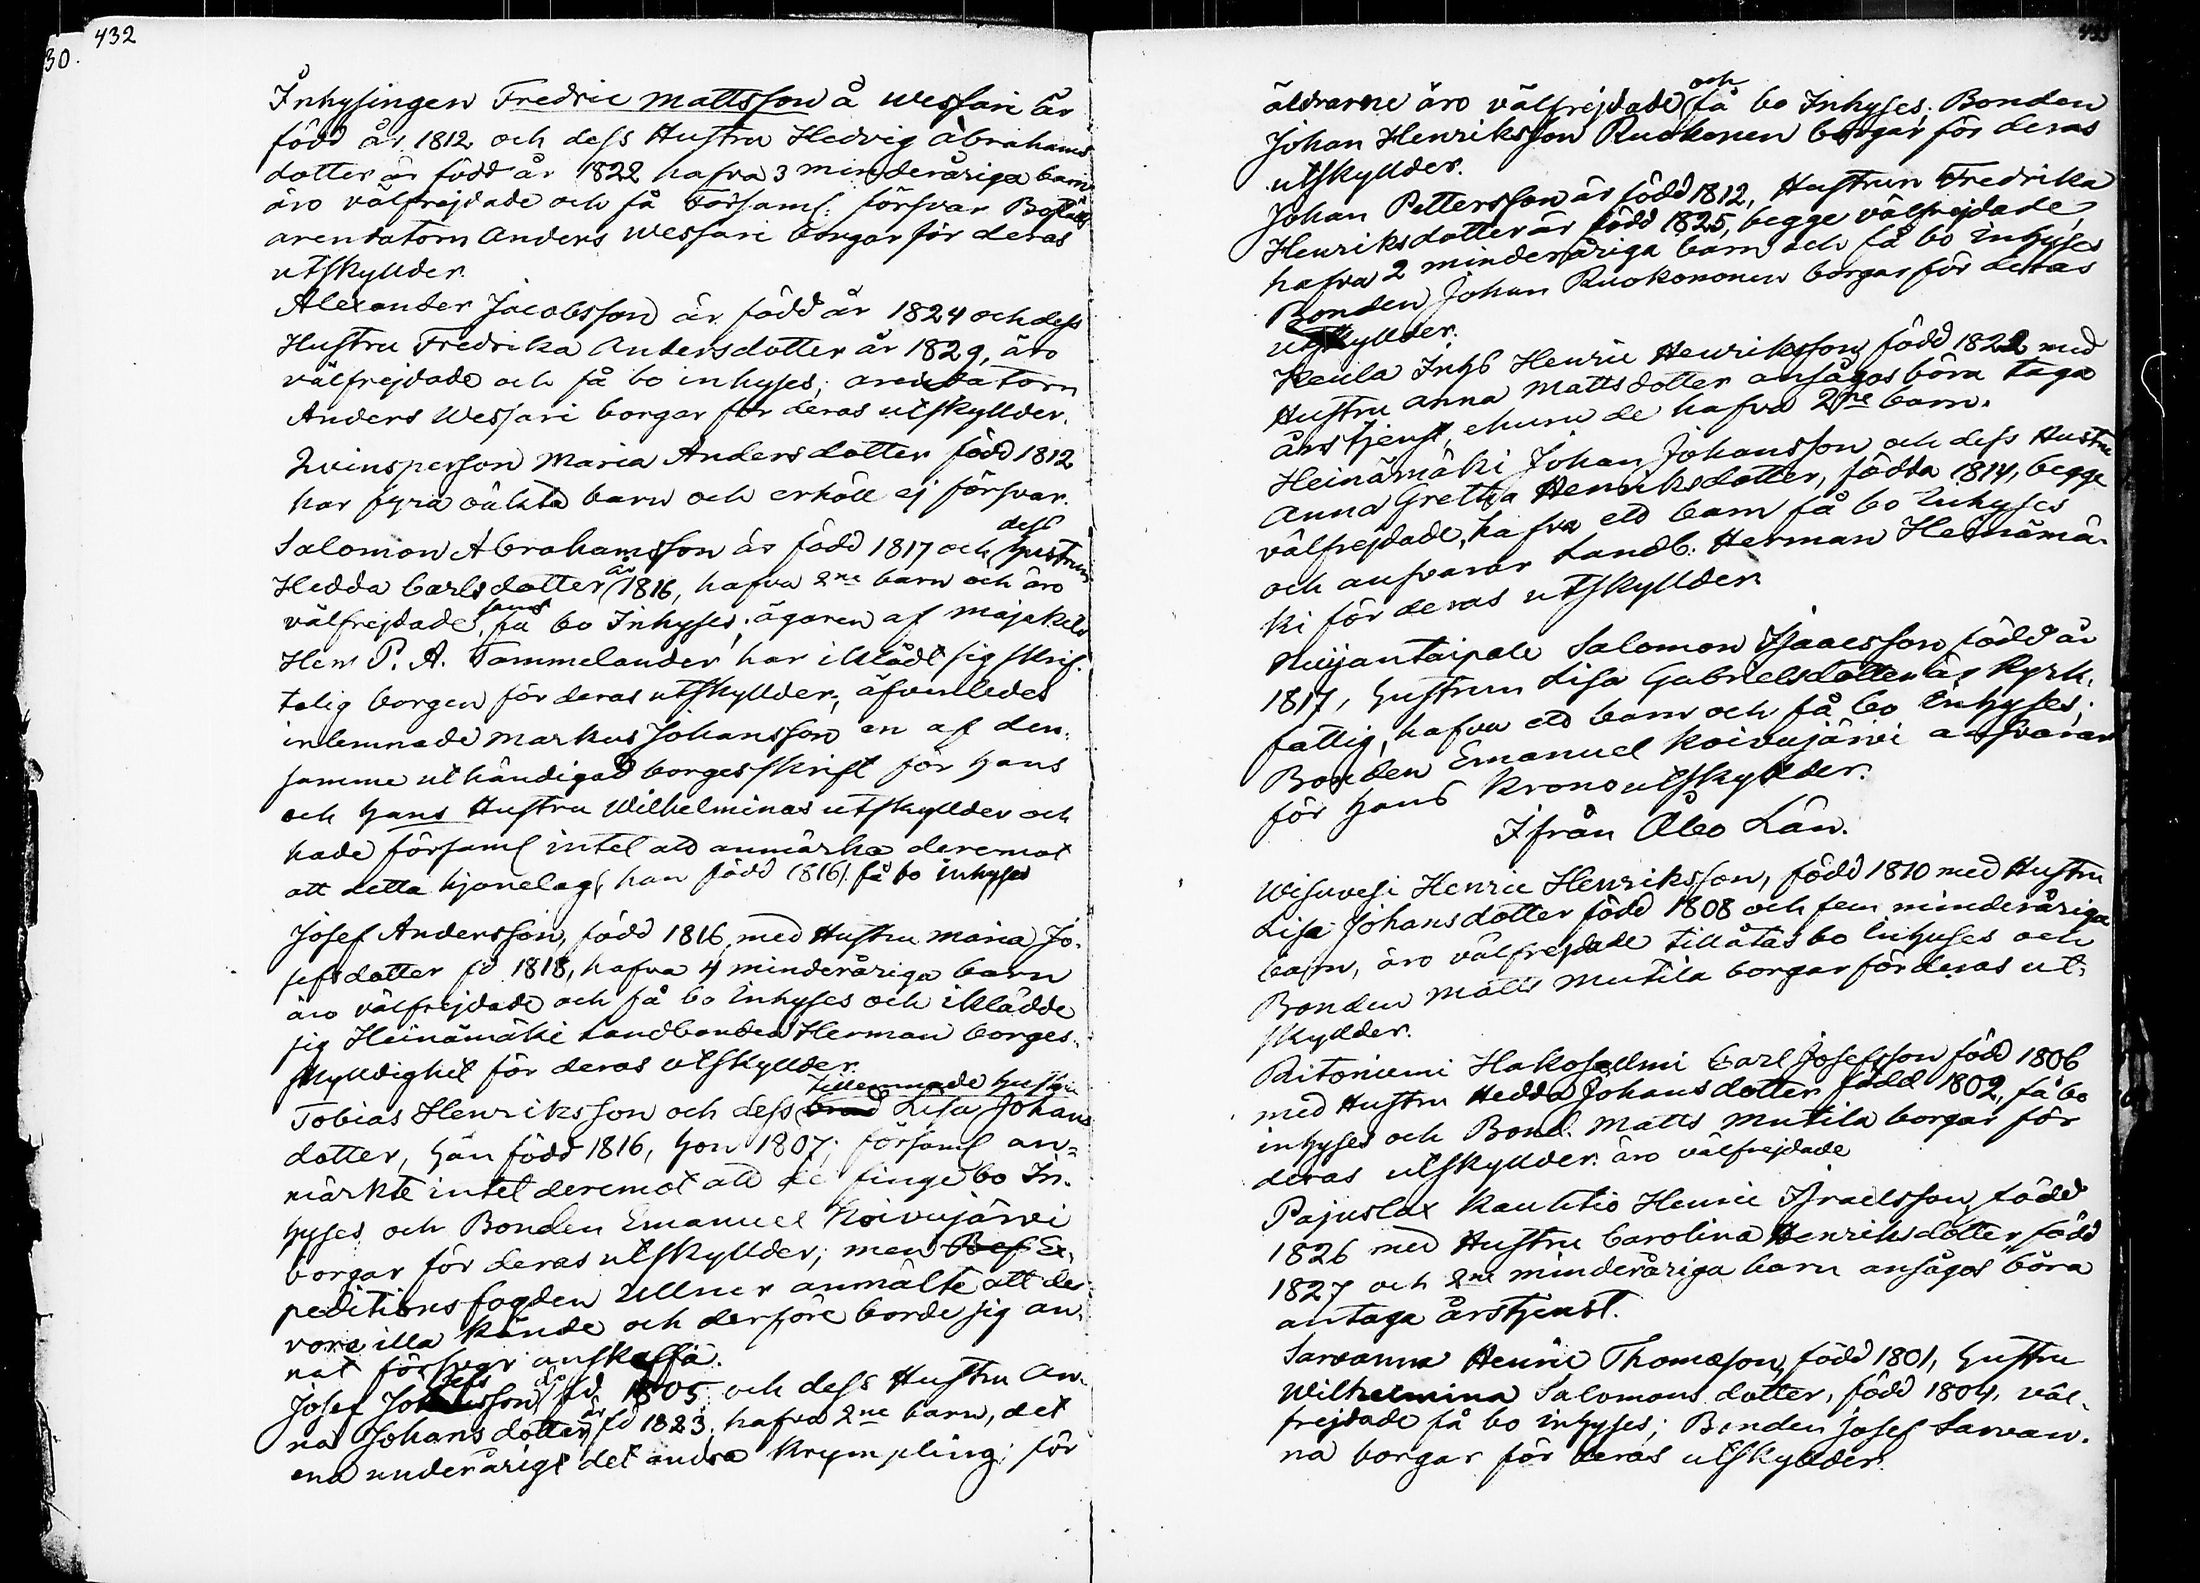 432
30.
Inhysingen Fredric Mattsson å Wessari är
född år 1812 och dess Hustru Hedvig Abrahams
dotter är född år 1822 hafva 3 minderåriga barn
äro välfrejdade och få församl: försvar Boställs
arendatorn Anders Wessari borgar för deras
utskyllder.
Alexander Jacobsson är född år 1824 och dess
Hustru Fredrika Andersdotter år 1829, äro
välfrejdade och få bo inhyses; arendatorn
Anders Wessari borgar för deras utskyllder.
Qvinsperson Maria Andersdotter född 1812
har fyra oäkta barn och erhöll ej försvar.
dess
Salomon Abrahamsson är född 1817 och Hustrun
Hedda Carlsdotter år 1816, hafva 2ne barn och äro
välfrejdade, samt få bo Inhyses; ägaren af Majakels
Herr P. A. Tammelander har iklädt sig skrif-
telig borgen för deras utskyllder; äfvenledes
inlemnade Markus Johansson en af den-
samme uthändigad borgesskrift för hans
och hans Hustru Wilhelminas utskyllder och
hade församl intet att anmärka deremot
att detta hjonelag, han född 1816, få bo inhyses
Josef Andersson, född 1816, med Hustru Maria Jo-
sefsdotter fd 1818, hafva 4 minderåriga barn
äro välfrejdade och få bo Inhyses och iklädde
sig Heinämäki Landbonden Herman borges-
skylldighet för deras utskyllder.
tillernnade Hustru
Tobias Henriksson och dess Lisa Johans
dotter, han född 1816, hon 1807; församl an-
märkte intet deremot att de finge bo In-
hyses och Bonden Emanuel Koivujärvi
borgar för deras utskyllder; men Bef Ex-
peditionsfogden Ullner anmälte att de
vore illa kände och derföre borde sig an-
nat försvar anskaffa.
Josef Josefsson fd 1805 och dess Hustru An-
na Johansdotter är fd 1823, hafva 2ne barn, det
ena underårigt det andra Krympling; för
433
äldrarne äro välfrejdade och få bo Inhyses; Bonden
Johan Henriksson Ruokonen borgar för deras
utskyllder.
Johan Pettersson är född 1812, Hustrun Fredrika
Henriksdotter är född 1825, begge välfrejdade,
hafva 2 minderåriga barn och få bo inhyses
Bonden Johan Ruokononen borgar för deras
utskyllder.
Keula Inhs Henric Henriksson född 1822 med
Hustru Anna Mattsdotter ansågos böra taga
årstjenst, ehuru de hafva 2ne barn.
Heinämäki Johan Johansson och dess Hustru
Anna Gretha Henriksdotter, födda 1814, begge
välfrejdade, hafva ett barn få bo Inhyses
och ansvarar Landb. Herman Heinämä-
ki för deras utskyllder.
Niijantaipale Salomon Isaacsson född år
1817, Hustrun Lisa Gabrielsdotter är kyrk-
fattig, hafva ett barn och få bo Inhyses;
Bonden Emanuel Koivujärvi ansvarar
för hans Kronoutskyllder.
Ifrån Åbo Län.
Wisuvesi Henric Henriksson, född 1810 med Hustru
Lisa Johansdotter född 1808 och fem minderåriga
barn, äro välfrejdade tillåtas bo Inhyses och
Bonden Matts Mutila borgar för deras ut-
skyllder.
Ritoniemi Hakosalmi Carl Josefsson född 1806
med Hustru Hedda Johansdotter född 1802, få bo
inhyses och Bond. Matts Mutila borgar för
deras utskyllder. äro välfrejdade
Pajuslax Kauhtio Henric Israelsson, född
1826 med Hustru Carolina Henriksdotter född
1827 och 2ne minderåriga barn ansågos böra
antaga årstjenst.
Sarvanna Henric Thomasson, född 1801, Hustru
Wilhelmina Salomonsdotter, född 1804, väl-
frejdade få bo inhyses; Bonden Josef Sarvan-
na borgar för deras utskyllder.